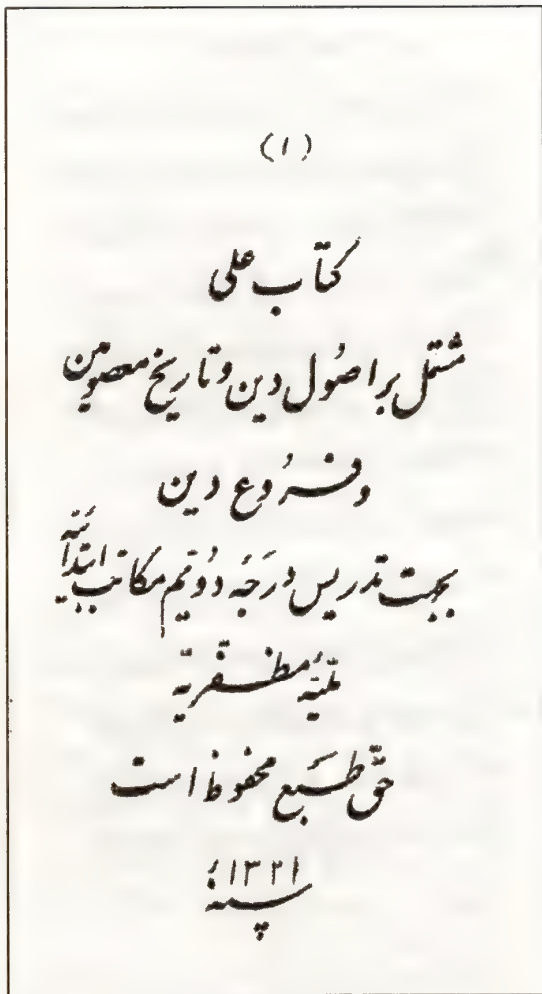 (۱)
کتاب علی
مشتمل بر اصُول دین و تاریخ معصومین
و فروُع دین
بجهت تدریس درجَه دوُیّم مکاتب ابتدائیّه
ملیّهٔ مظفّریّه
حقّ طبَع محفوظ است
سنه ۱۳۲۱